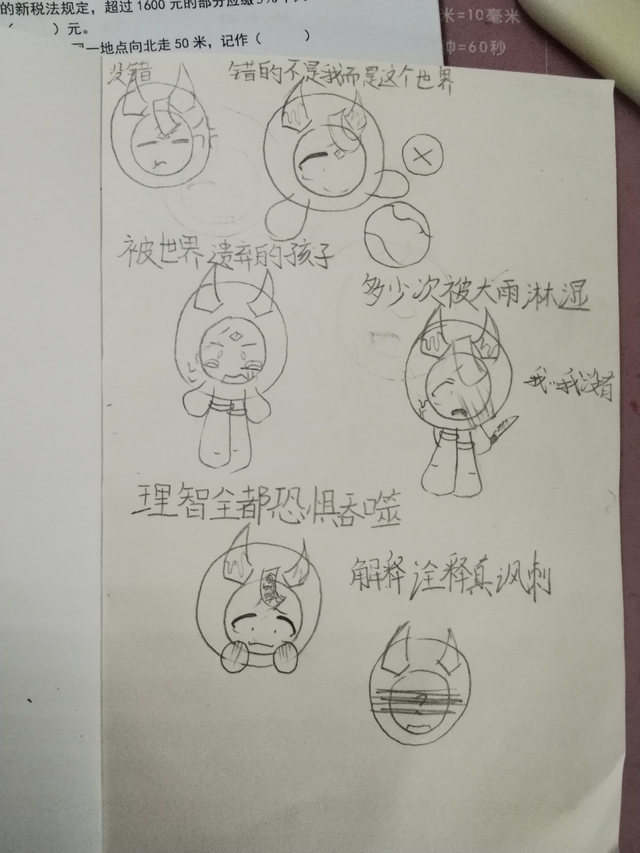 的新税法规定，超过1600元的部分应缴5%个人
（　　）元。
一地点向北走50米，记作（　　）
米=10毫米
=60秒
没错
错的不是我而是这个世界
被世界遗弃的孩子
多少次被大雨淋湿
我…我没有
理智全都恐惧吞噬
解释诠释真讽刺